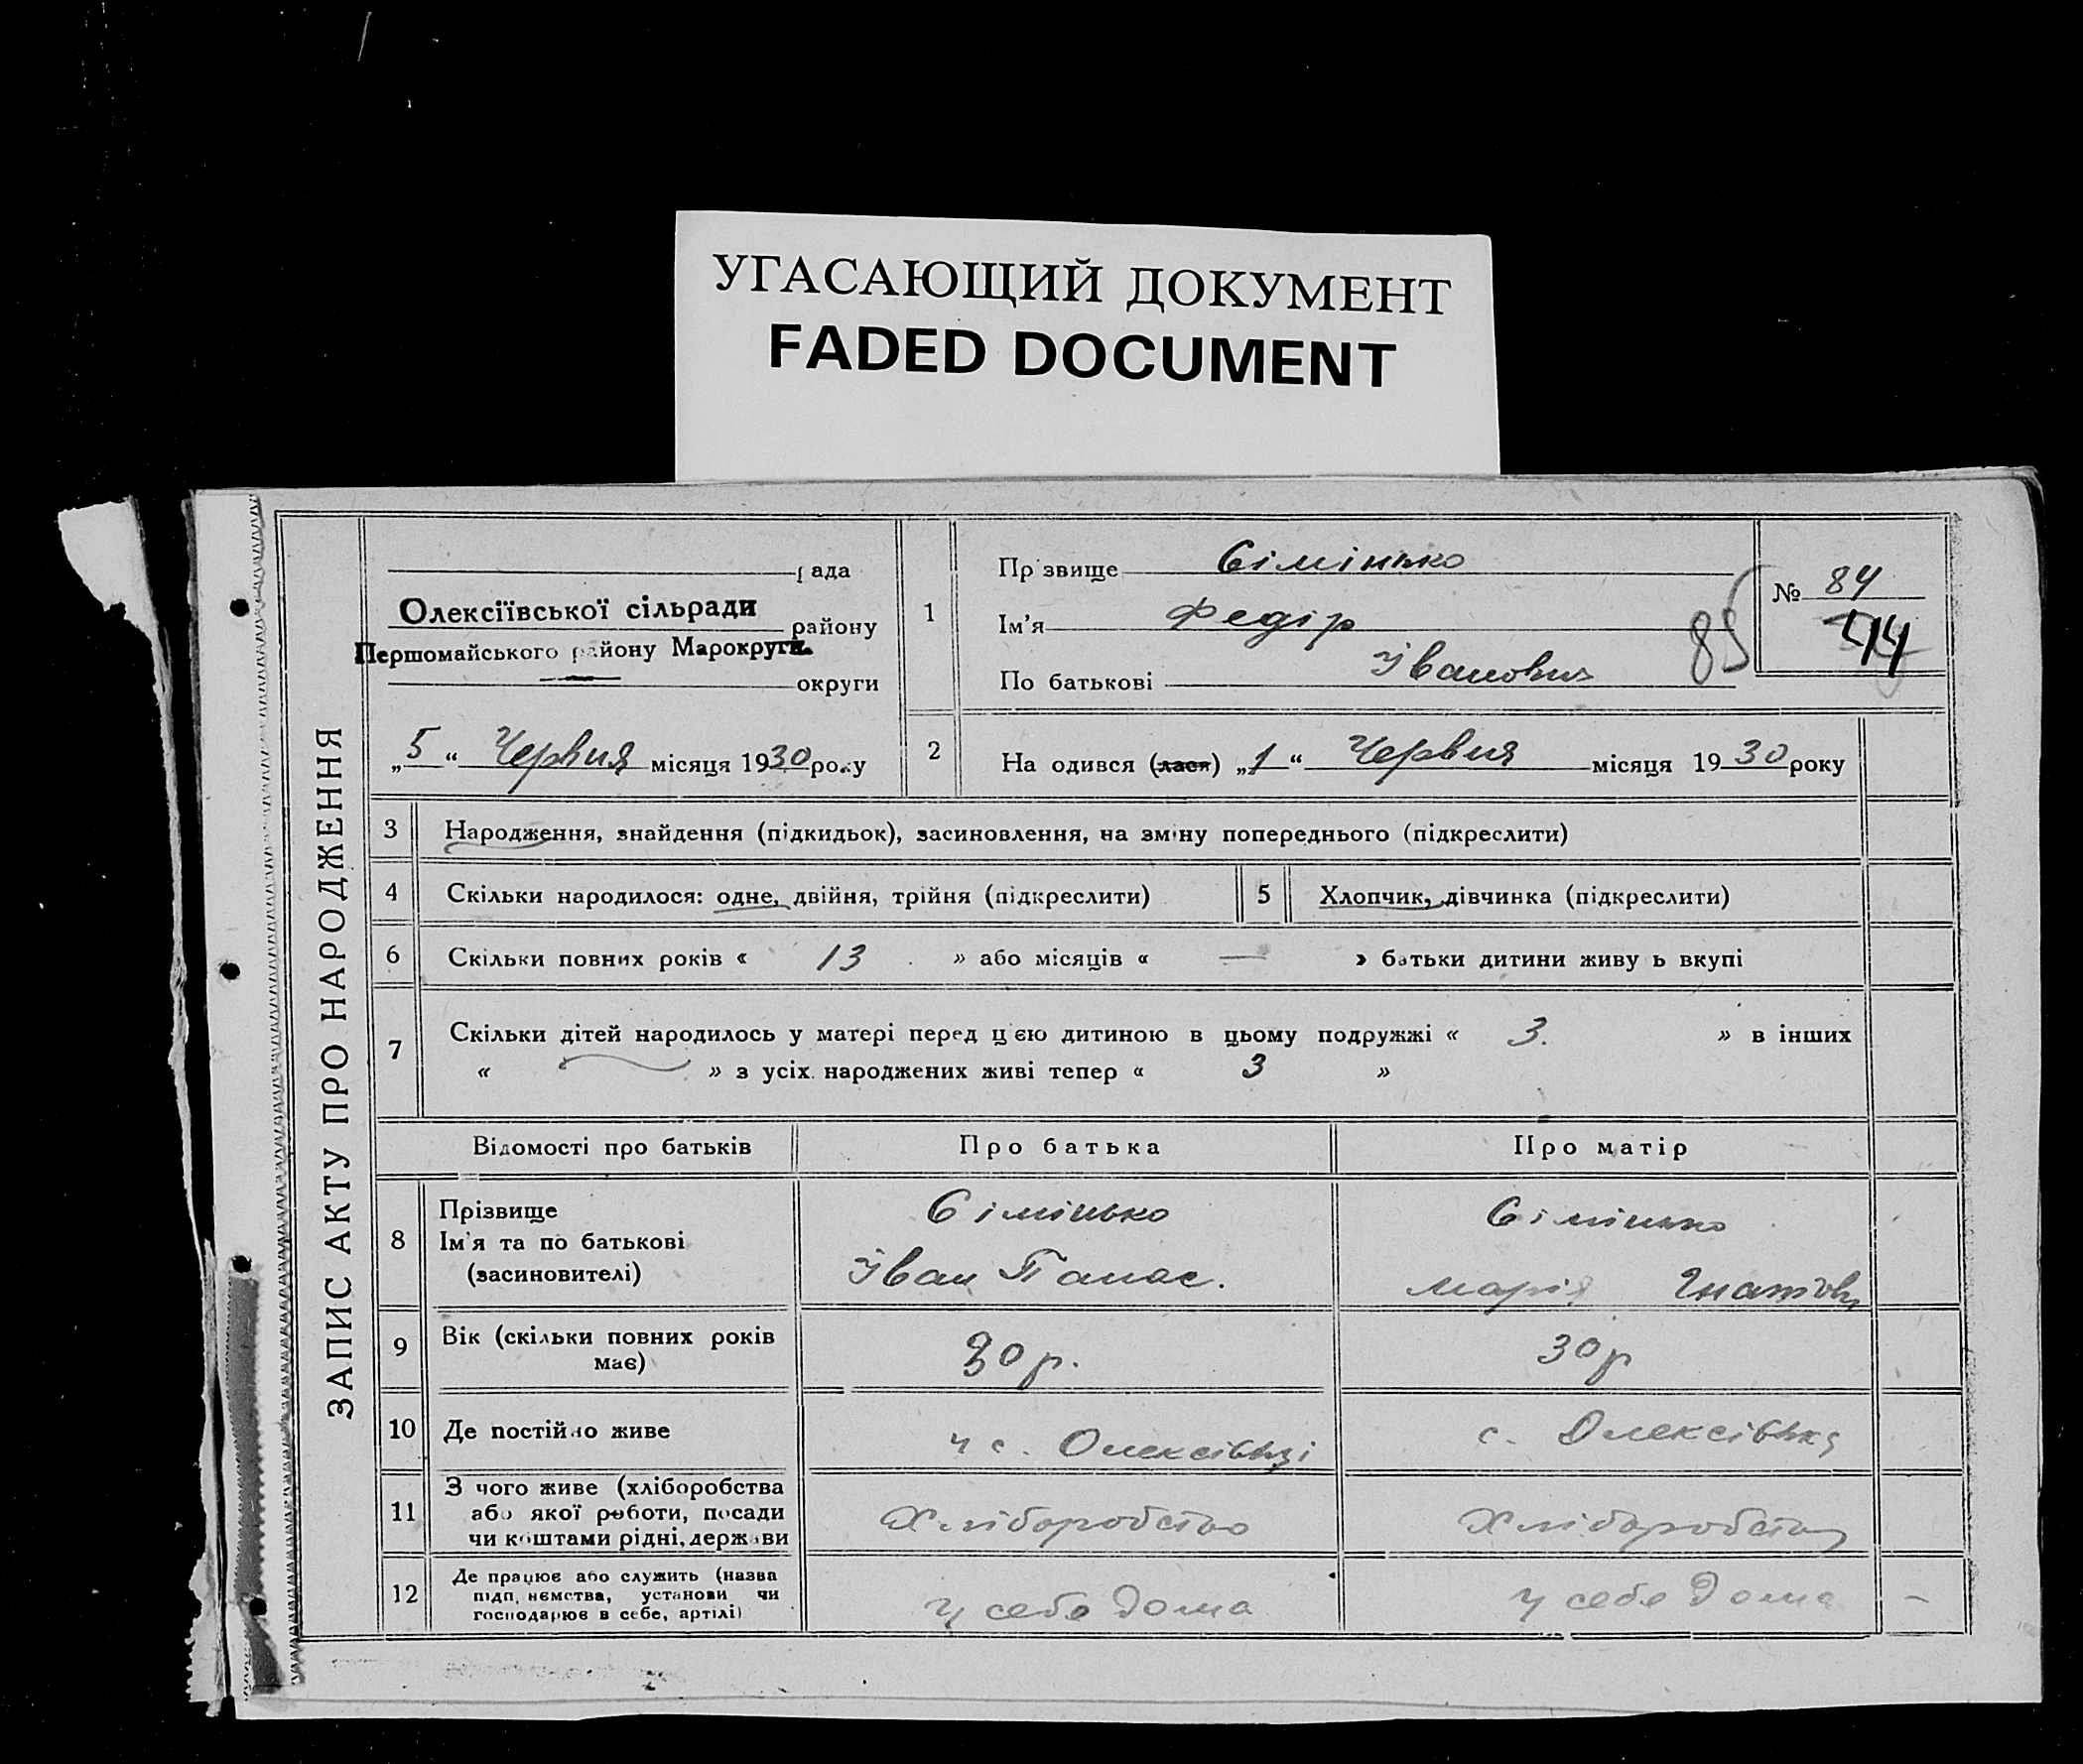 УГАСАЮЩИЙ ДОКУМЕНТ
FADED DOCUMENT
ЗАПИС АКТУ ПРО НАРОДЖЕННЯ
рада
Олексіївської сільради
району
Першомайського району Марокруги.
округи
„5“ Червня місяця 1930 року
1
Пр звище Сімінько
Ім'я Федір
По батькові Іванович
№ 84
85
2
На одився (лася) „1“ Червня місяця 1930 року
3 Народження, знайдення (підкидьок), засиновлення, на зміну попереднього (підкреслити)
4 Скільки народилося: одне, двійня, трійня (підкреслити)
5 Хлопчик, дівчинка (підкреслити)
6 Скільки повних років « 13 » або місяців « — » батьки дитини живу ь вкупі
7 Скільки дітей народилось у матері перед цією дитиною в цьому подружжі « 3. » в інших
« — » з усіх народжених живі тепер « 3 »
Відомості про батьків Про батька Про матір
8 Прізвище
Ім'я та по батькові
(засиновителі)
Сімінько
Іван Панас.
Сімінько
Марія Гнатовн
9 Вік (скільки повних років
має)
30 р.
30 р
10 Де постійно живе
у с. Олексівці
с. Олексівка
11 З чого живе (хліборобства
або якої роботи, посади
чи коштами рідні, держави
Хліборобство
Хліборобство
12 Де працює або служить (назва
підп. нємства, установи чи
господарює в себе, артілі)
у себе дома
у себе дома
–